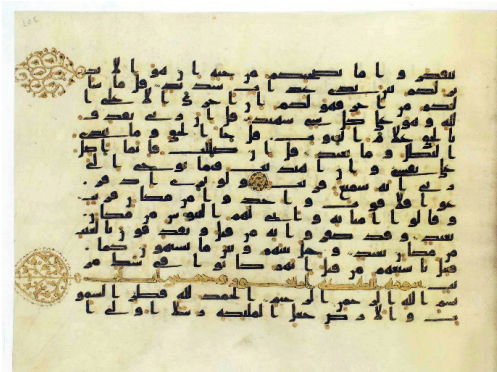 تتفكروا ما بصحبكم من جنة ان هو الا نذ
ير لكم بين يدي عذاب شديد قل ما سا
لتكم من اجر فهو لكم ان اجري الا على ا
لله وهو على كل شي شهيد قل ان ربي يقذف
بالحق علم الغيوب قل جا الحق وما يبدئ
البطل وما يعيد قل ان ضللت فانما اضل
على نفسي وان اهتديت فبما يوحي الي
ربي انه سميع قريب ولو ترى اذ فز
عوا فلا فوت واخذوا من مكان قريب
وقالوا امنا به وانى لهم التناوش من مكان
بعيد وقد كفروا به من قبل ويقذفون بالغيب
من مكان بعيد وحيل بينهم وبين ما يشتهون كما
فعل باشياعهم من قبل انهم كانوا في شك مر
يب سورة الملئكة
بسم الله الرحمن الرحيم الحمد لله فطر السمو
ت والارض جعل الملئكة رسلا اولي ا